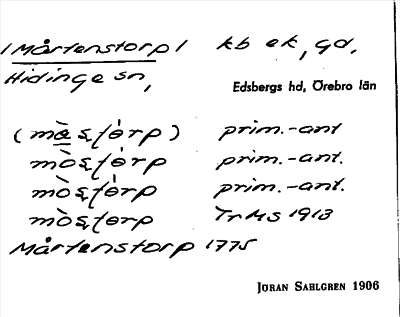 /Mårtenstorp/ kb ek, gd,
Hidinge sn,
Edsbergs hd, Örebro län
(màʂtɵ̀rp) prim.-ant
mòʂtɵ̀rp prim.-ant.
mòʂtɵ̀rp prim.-ant.
mòʂtɵrp TrMS 1913
Mårtenstorp 1775
JÖRAN SAHLGREN 1906